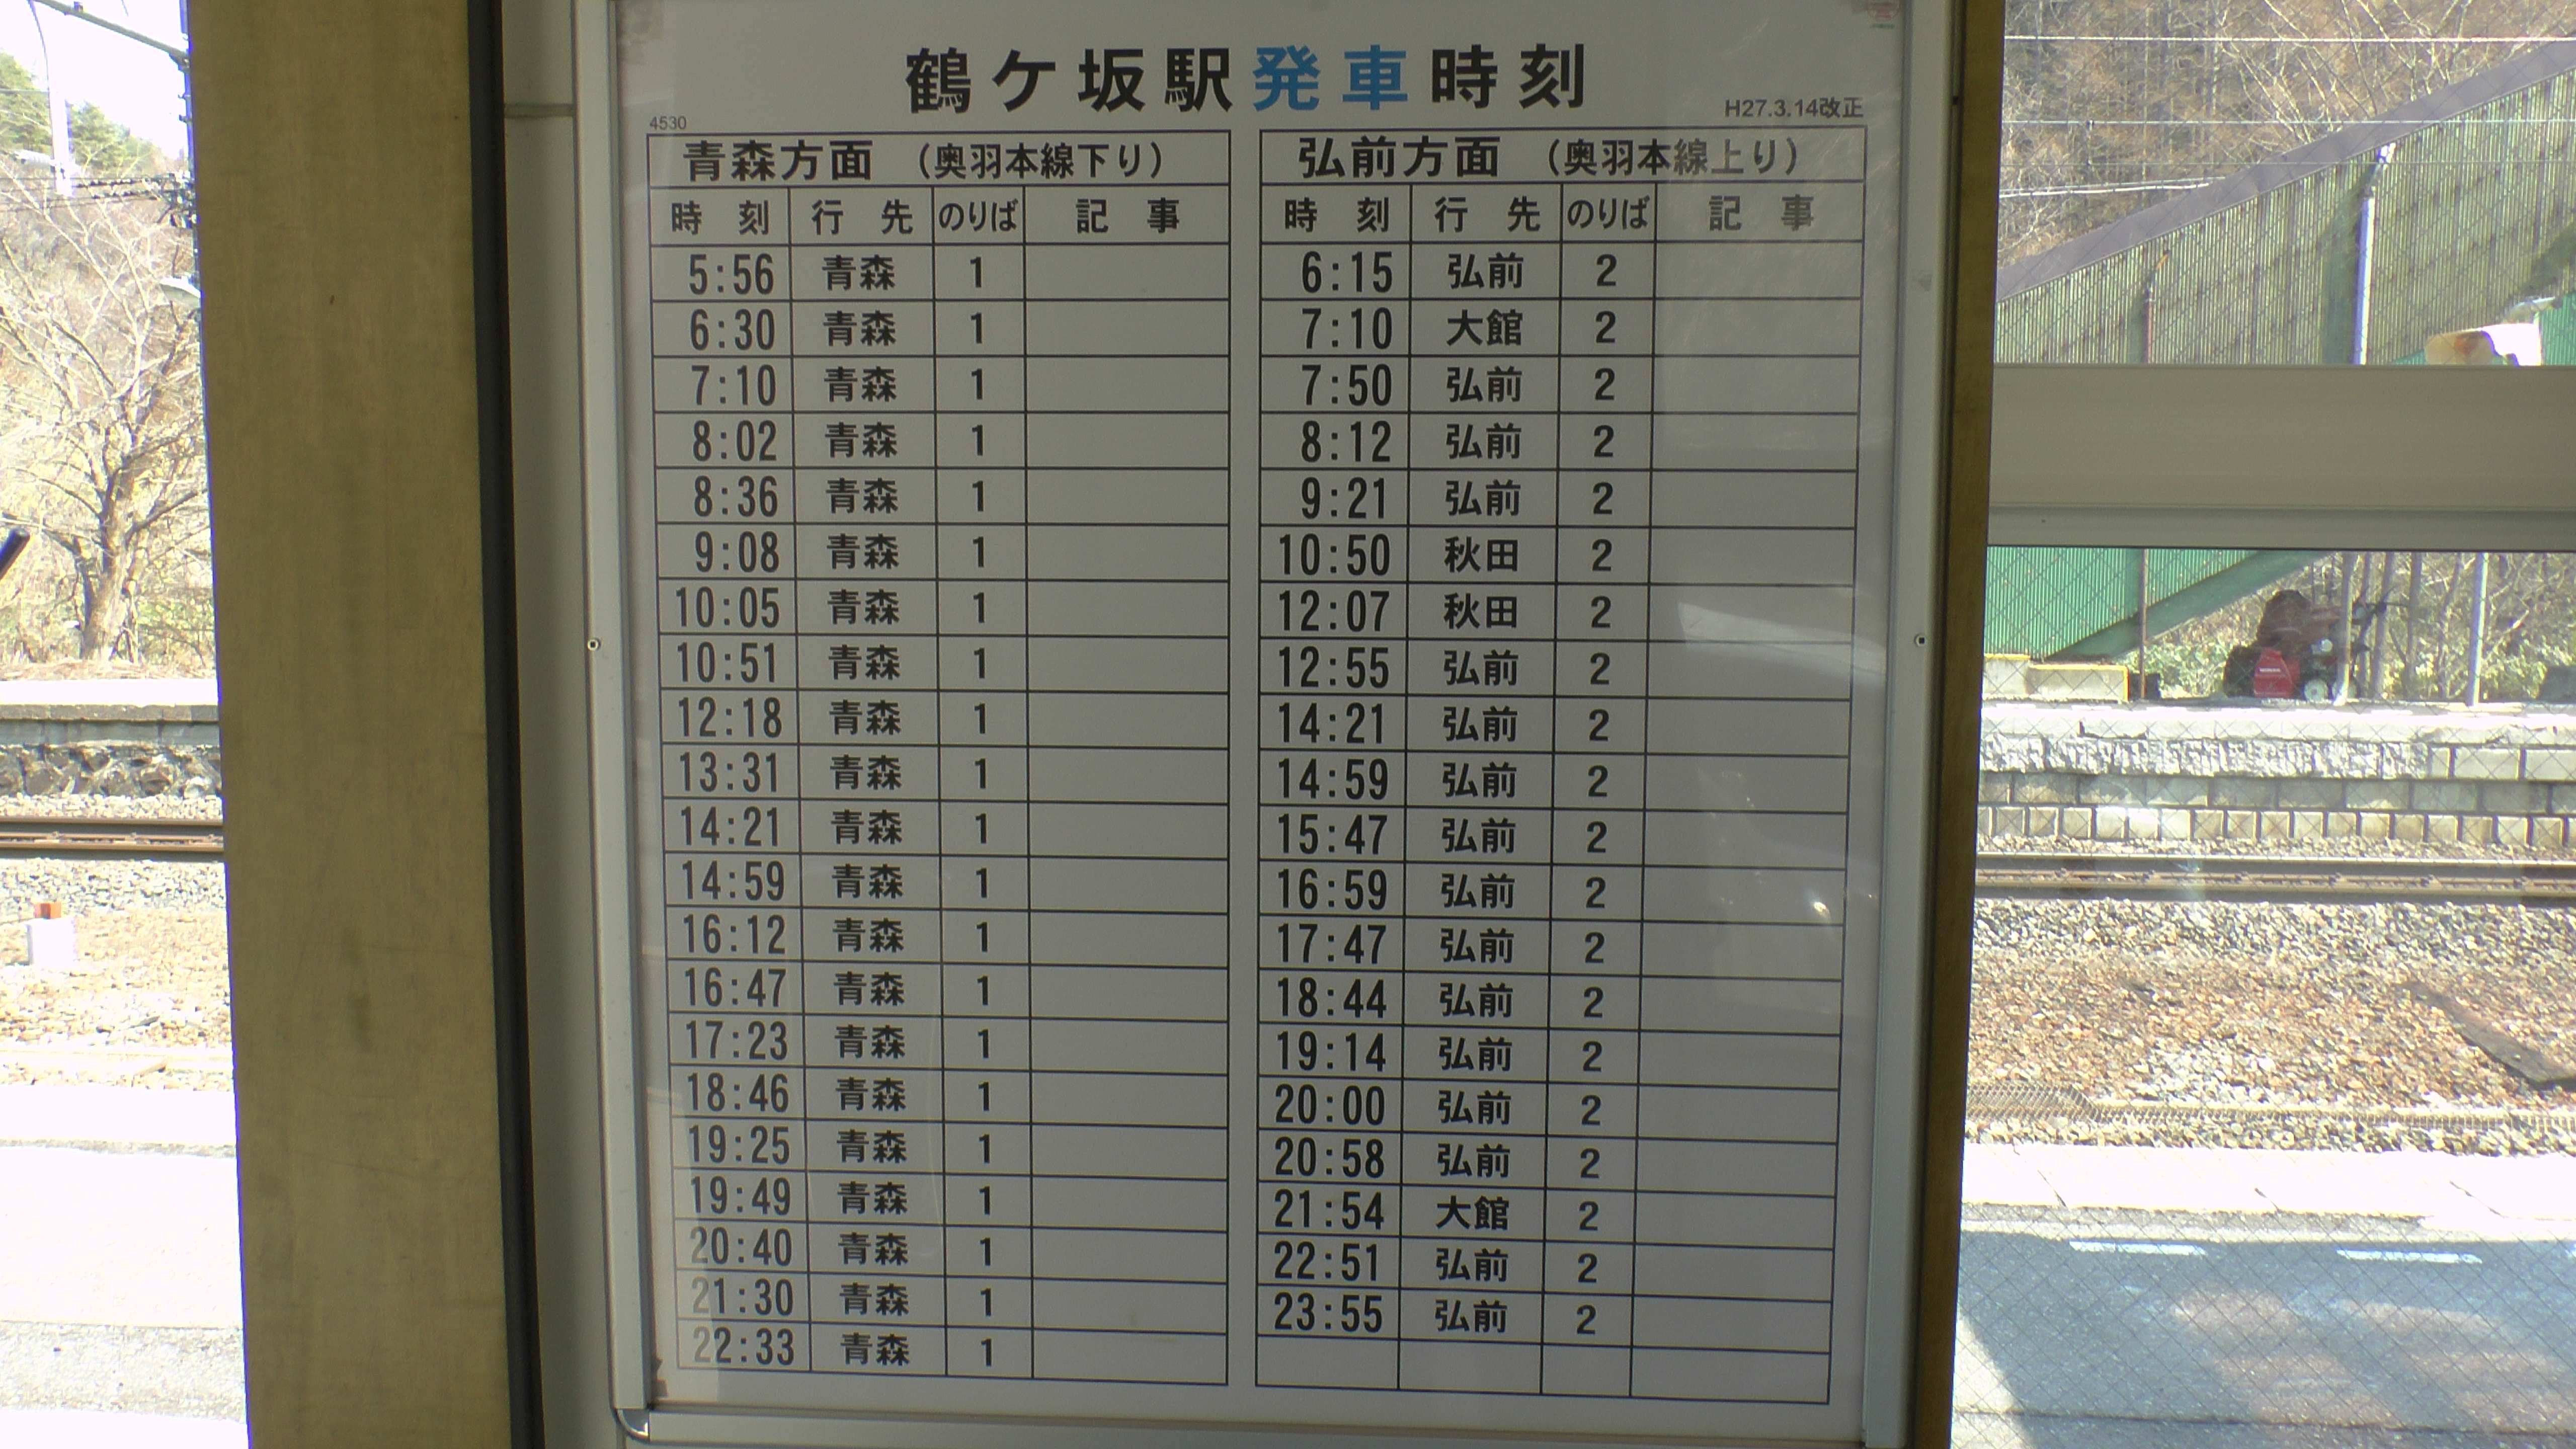 鶴ケ坂駅発車時刻
H27.3.14改正
4530
青森方面 (奥羽本線下り)
時刻 行先 のりば 記事
5:56 青森 1
6:30 青森 1
7:10 青森 1
8:02 青森 1
8:36 青森 1
9:08 青森 1
10:05 青森 1
10:51 青森 1
12:18 青森 1
13:31 青森 1
14:21 青森 1
14:59 青森 1
16:12 青森 1
16:47 青森 1
17:23 青森 1
18:46 青森 1
19:25 青森 1
19:49 青森 1
20:40 青森 1
21:30 青森 1
22:33 青森 1
弘前方面 (奥羽本線上り)
時刻 行先 のりば 記事
6:15 弘前 2
7:10 大館 2
7:50 弘前 2
8:12 弘前 2
9:21 弘前 2
10:50 秋田 2
12:07 秋田 2
12:55 弘前 2
14:21 弘前 2
14:59 弘前 2
15:47 弘前 2
16:59 弘前 2
17:47 弘前 2
18:44 弘前 2
19:14 弘前 2
20:00 弘前 2
20:58 弘前 2
21:54 大館 2
22:51 弘前 2
23:55 弘前 2